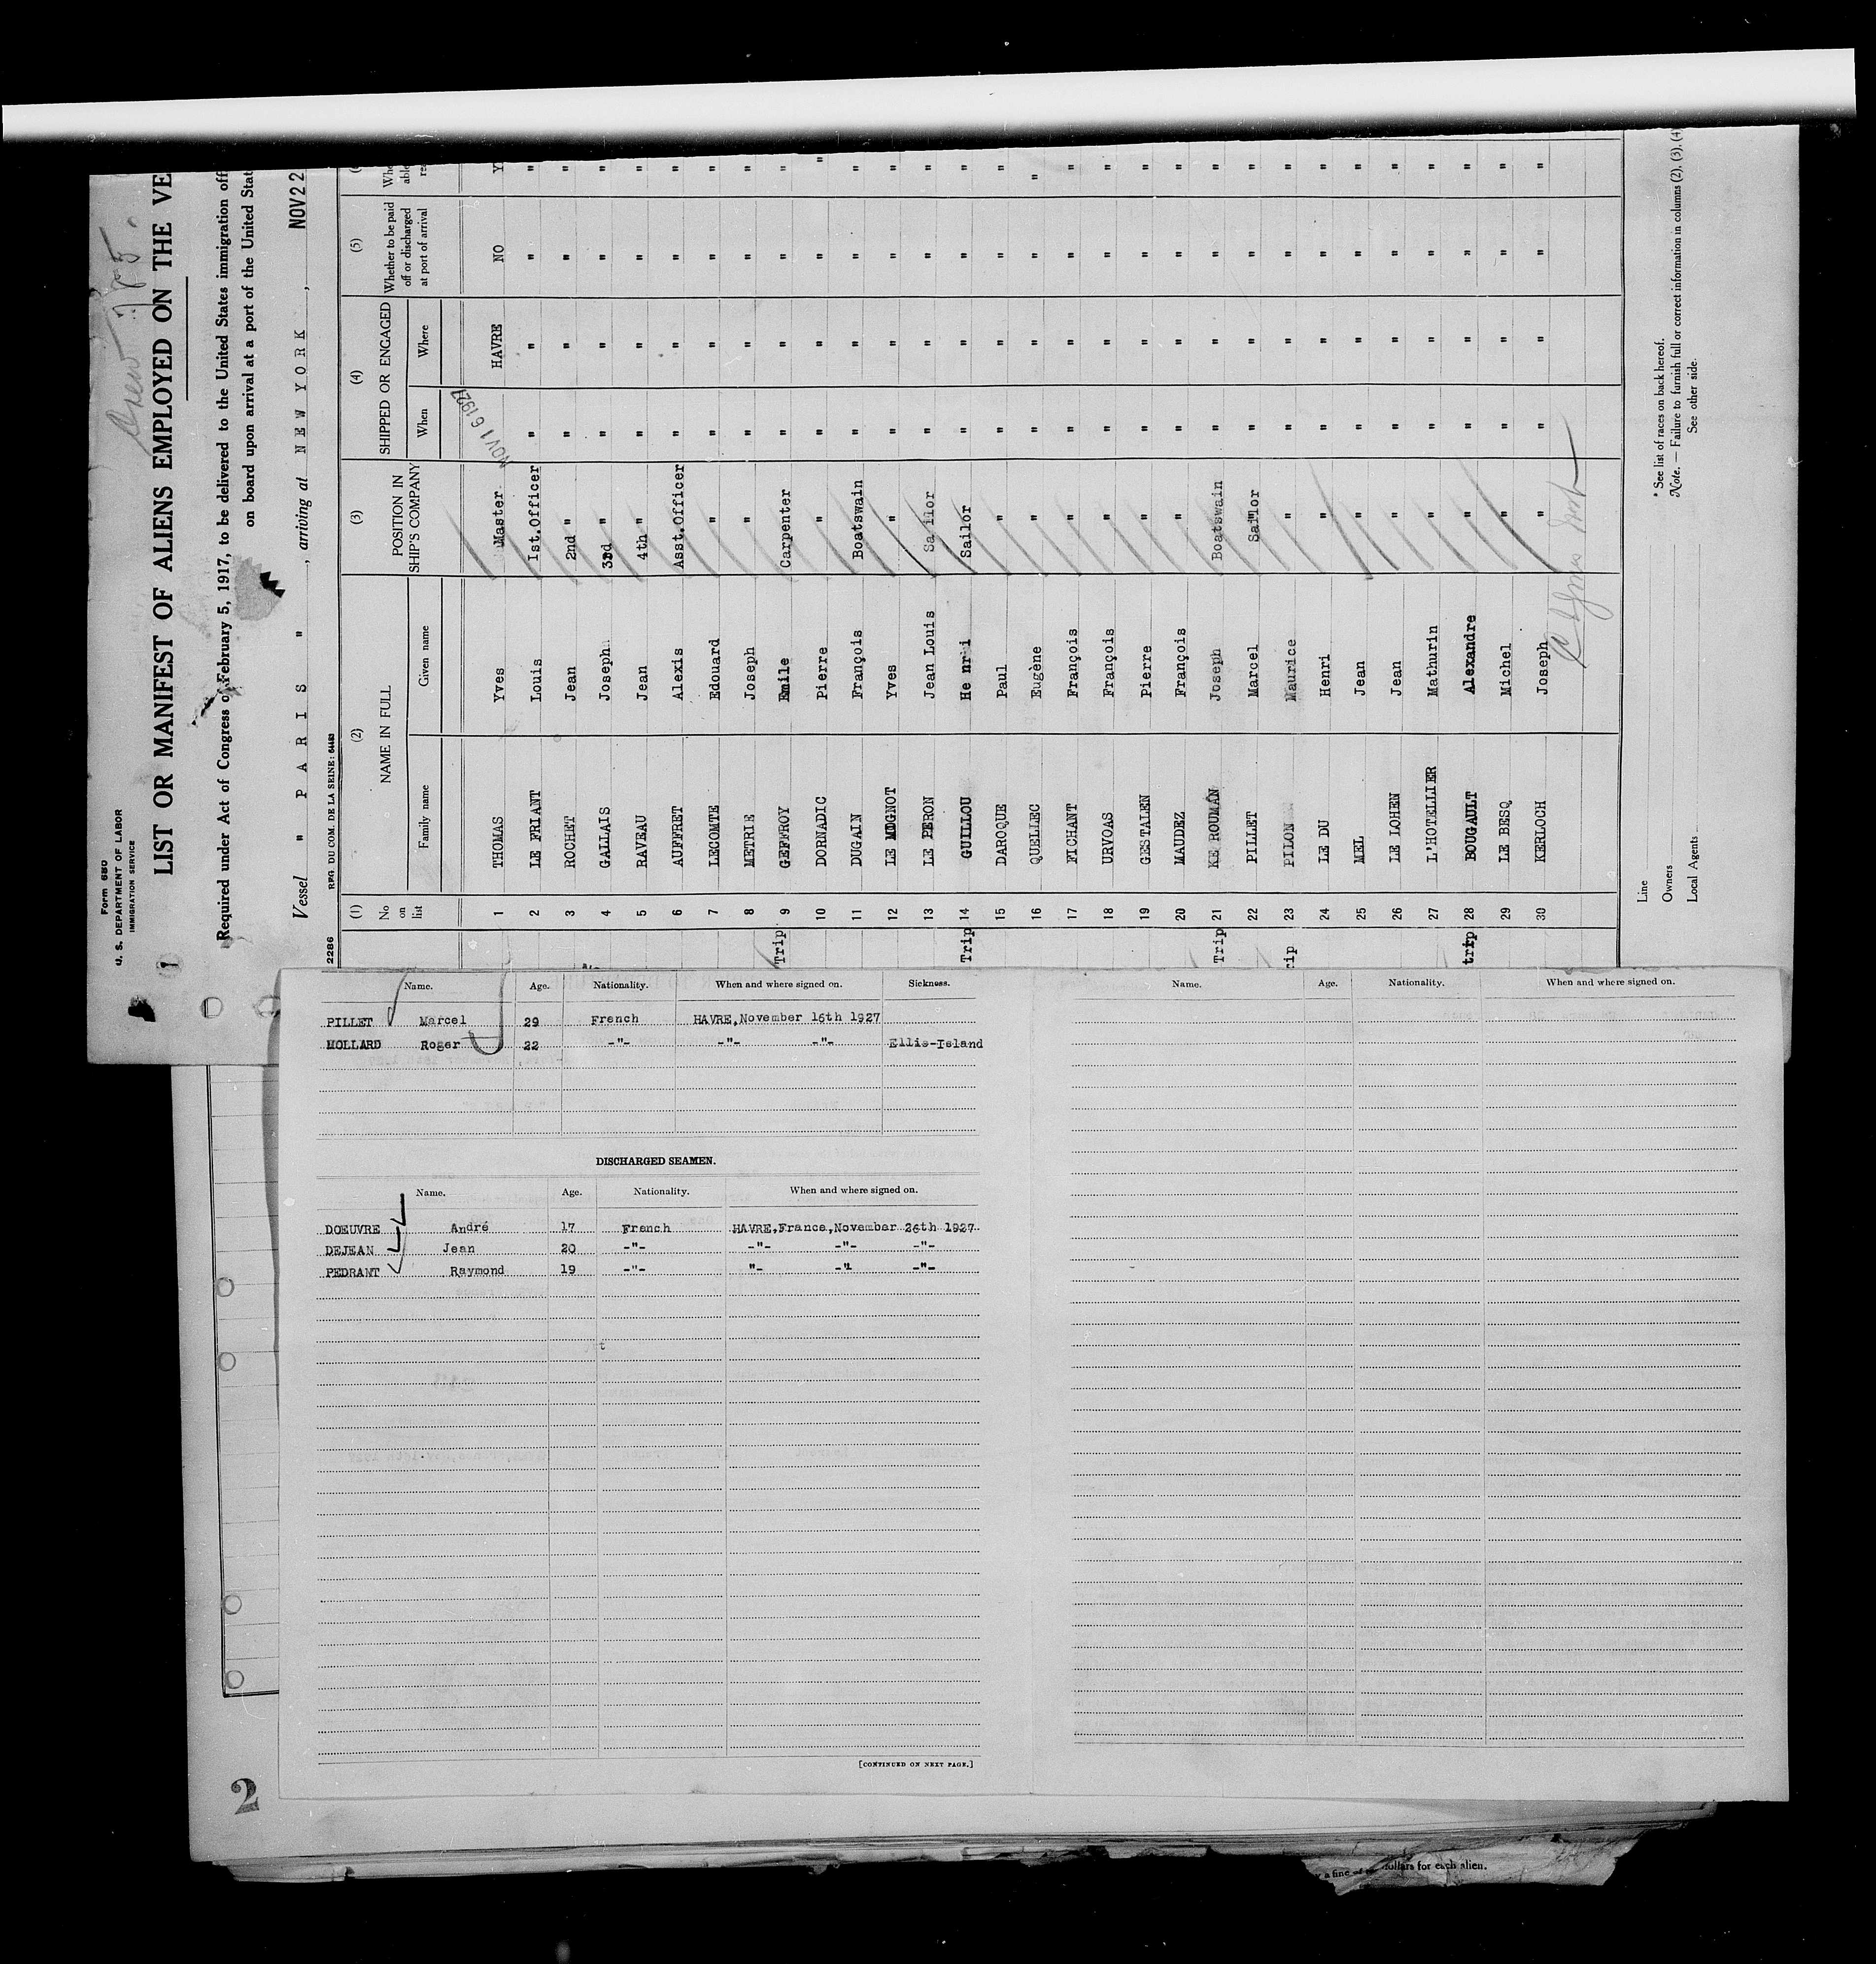 Form 680
U. S. DEPARTMENT OF LABOR
IMMIGRATION SERVICE
1
Crew 785.
LIST OR MANIFEST OF ALIENS EMPLOYED ON THE VE
Required under Act of Congress of February 5, 1917, to be delivered to the United States immigration off
on board upon arrival at a port of the United Stat
Vessel " P A R I S " , arriving at N E W Y O R K , NOV 22
2286 REG. DU COM. DE LA SEINE: 64483
(1) (2) (3) (4) (5)
No on list NAME IN FULL POSITION IN SHIP'S COMPANY SHIPPED OR ENGAGED Whether to be paid off or discharged at port of arrival
Family name Given name When Where
1 THOMAS Yves Master NOV 16 1927 HAVRE NO
2 LE FRIANT Louis Ist.Officer " " " "
3 ROCHET Jean 2nd " " " " "
4 GALLAIS Joseph 3rd " " " " "
5 RAVEAU Jean 4th " " " " "
6 AUFFRET Alexis Asst.Officer " " " "
7 LECOMTE Edouard " " " " "
8 METRIE Joseph " " " " "
Trip 9 GEFFROY Emile Carpenter " " " "
10 DORNADIC Pierre " " " " "
11 DUGAIN François Boatswain " " " "
12 LE MOGNOT Yves " " " " "
13 LE PERON Jean Louis Sailor " " " "
Trip 14 GUILLOU Henri Sailor " " " "
15 DAROQUE Paul " " " " "
16 QUELLEC Eugène " " " " "
17 FICHANT François " " " " "
18 URVOAS François " " " " "
19 GESTALEN Pierre " " " " "
20 MAUDEZ François " " " " "
Trip 21 KE ROUMAN Joseph Boatswain " " " "
22 PILLET Marcel Sailor " " " "
rip 23 PILON Maurice " " " " "
24 LE DU Henri " " " " "
25 MEL Jean " " " " "
26 LE LOHEN Jean " " " " "
27 L'HOTELLIER Mathurin " " " " "
trip 28 BOUGAULT Alexandre " " " " "
29 LE BESQ Michel " " " " "
30 KERLOCH Joseph " " " " "
Line
Owners
Local Agents
* See list of races on back hereof.
Note. — Failure to furnish full or correct information in columns (2), (3), (4)
See other side.
Name. Age. Nationality. When and where signed on. Sickness.
PILLET Marcel 29 French HAVRE,November 16th 1927
MOLLARD Roger 22 -"- -"- -"- Ellis-Island
DISCHARGED SEAMEN.
Name. Age. Nationality. When and where signed on.
DOEUVRE André 17 French HAVRE,France,November 26th 1927
DEJEAN Jean 20 -"- -"- -"- -"-
PEDRANT Raymond 19 -"- "- -" -"-
[CONTINUED ON NEXT PAGE.]
Name. Age. Nationality. When and where signed on.
2
a fine of dollars for each alien.